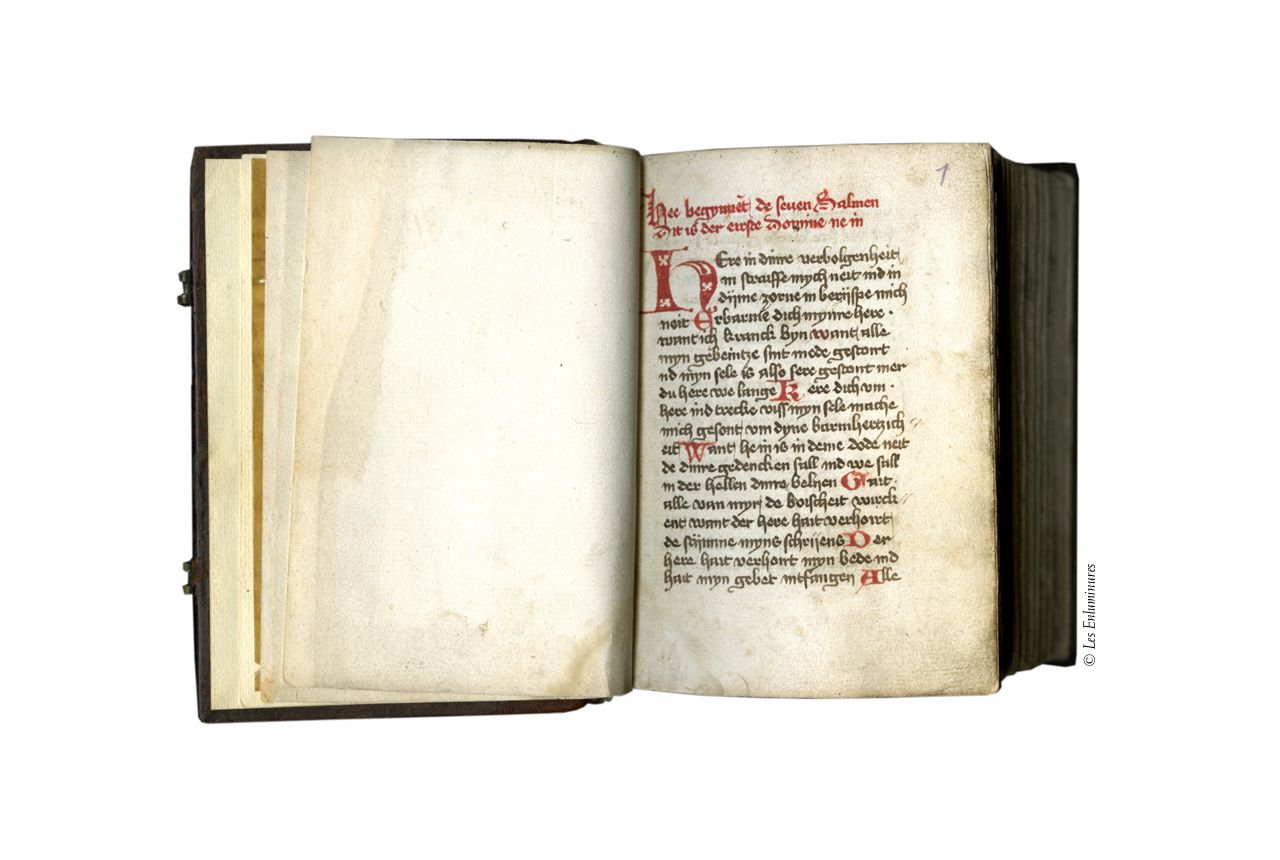 1
Hee begynnēt de seuen Salmen
Dit is der eirste Domine ne in
Here in dinre verbolgenheit
in straiffe mych neit ind in
dijme zorne in berijspe mich
neit Erbarme dich mynre here ·
want ich kranck byn want alle
myn gebeintze sint mede gestoirt
nd myn sele is also sere gestoirt mer
du here we lange Kere dich vm ·
here ind trecke viss myn sele mache
mich gesont vm dyne barmhertzich
eit Want he in is in deme dode neit
de dinre gedencken sall ind we sall
in der hellen dinre belijen Gait ·
alle van myr de boischeit wirck
ent want der here hait verhoirt
de stijmme myns schrijens Der
here hait verhoirt myn bede ind
hait myn gebet intfangen Alle
© Les Enluminures